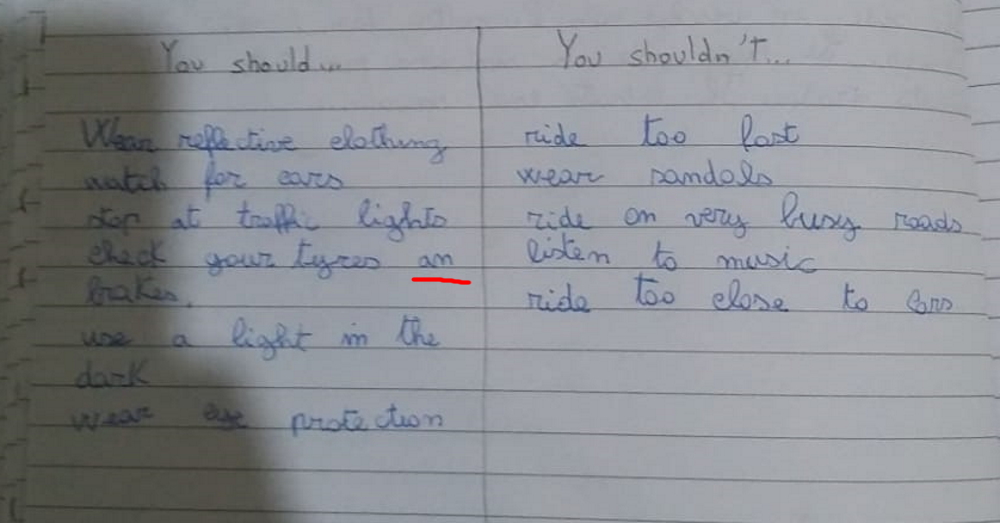 You should...
Wear reflective clothing
watch for cars
stop at traffic lights
check your tyres an
brakes.
use a light in the
dark
wear eye protection
You shouldn't...
ride too fast
wear sandals
ride on very busy roads
listen to music
ride too close to cars